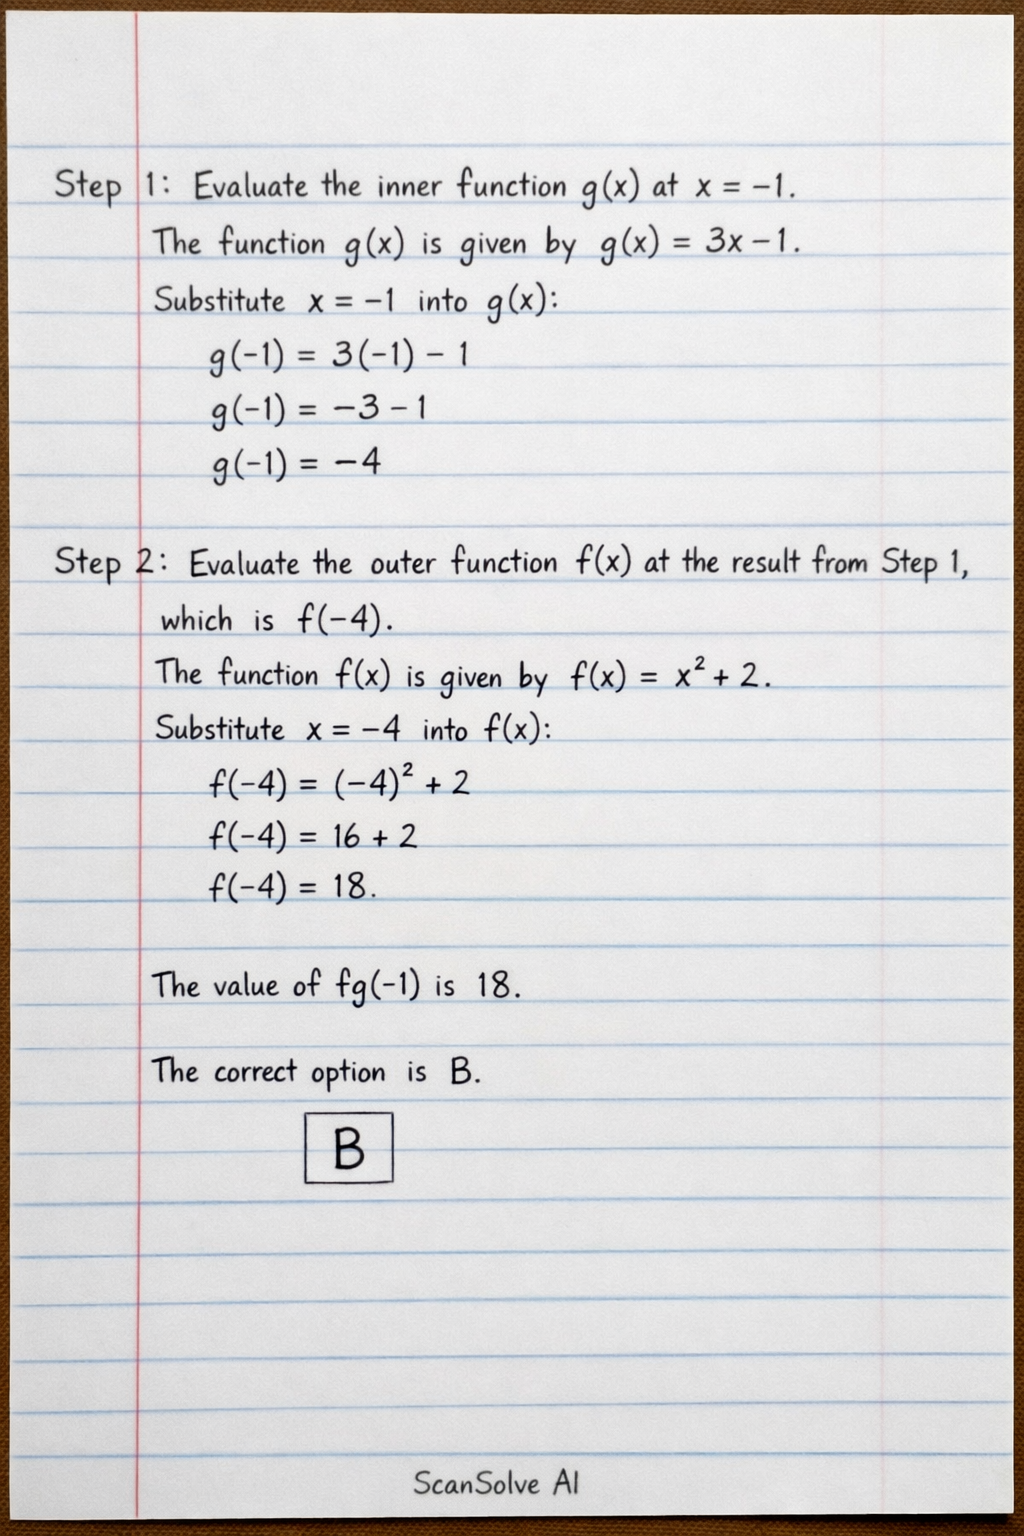 Step 1: Evaluate the inner function g(x) at x = −1.
The function g(x) is given by g(x) = 3x − 1.
Substitute x = −1 into g(x):
g(−1) = 3(−1) − 1
g(−1) = −3 − 1
g(−1) = −4
Step 2: Evaluate the outer function f(x) at the result from Step 1,
which is f(−4).
The function f(x) is given by f(x) = x² + 2.
Substitute x = −4 into f(x):
f(−4) = (−4)² + 2
f(−4) = 16 + 2
f(−4) = 18.
The value of fg(−1) is 18.
The correct option is B.
B
ScanSolve AI